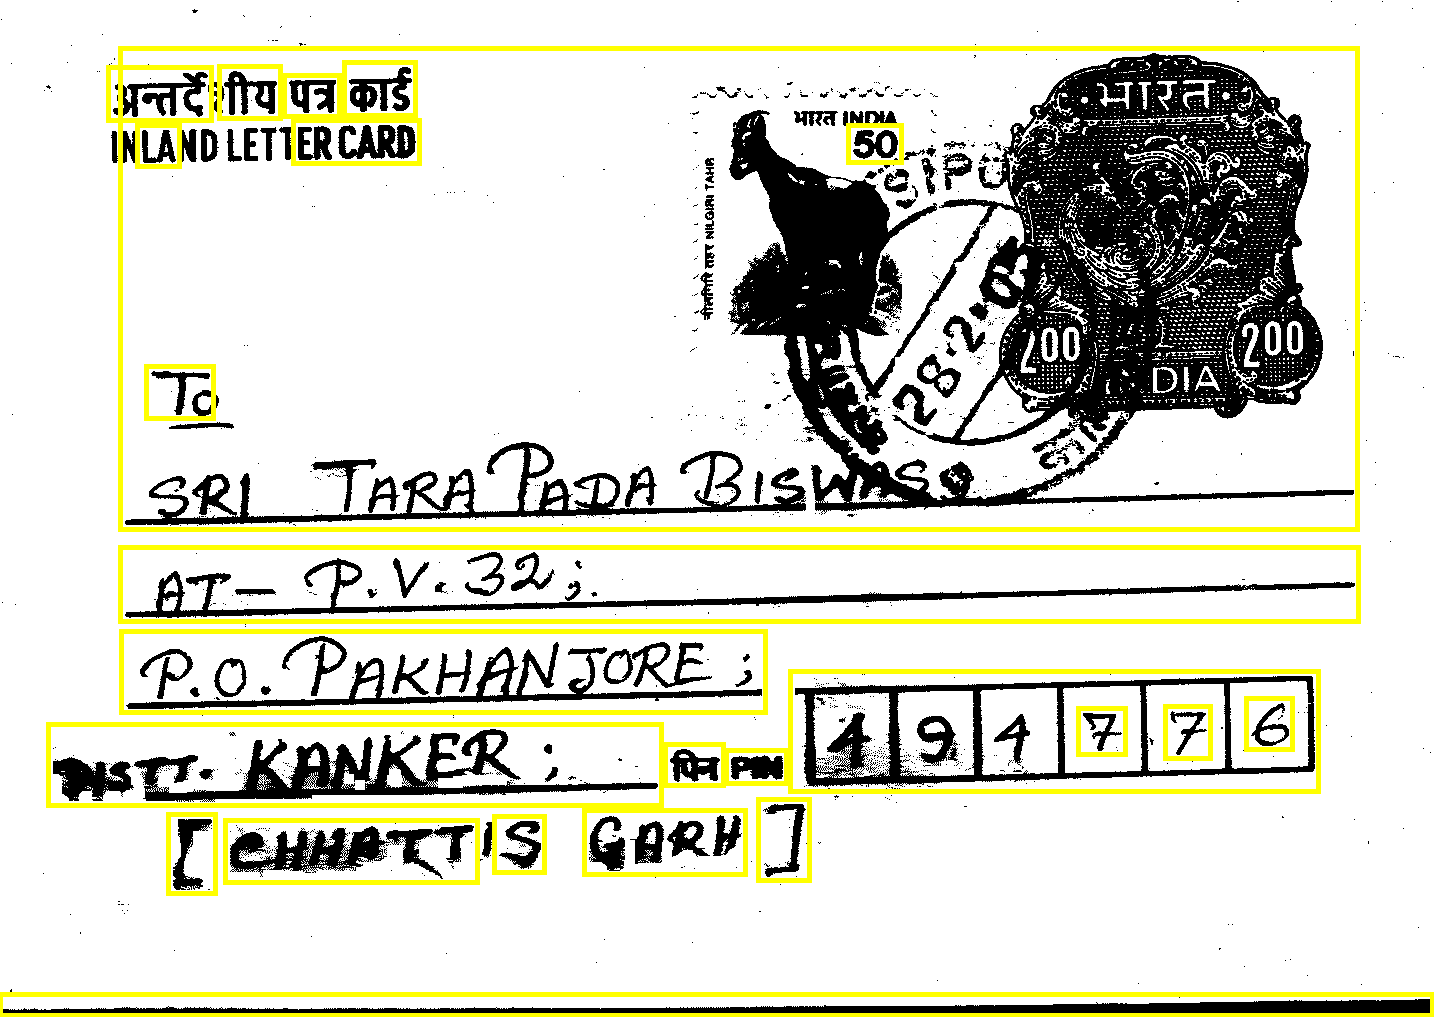 अन्तर्देशीय पत्र कार्ड
INLAND LETTER CARD
भारत INDIA
50
नीलगिरि तहर NILGIRI TAHR
भारत
200 200
28.2.03
To
SRI TARA PADA BISWAS
AT - P.V. 32;.
P.O. PAKHANJORE ;
DISTT. KANKER ;
पिन PIN 494776
[ CHHATTIS GARH ]